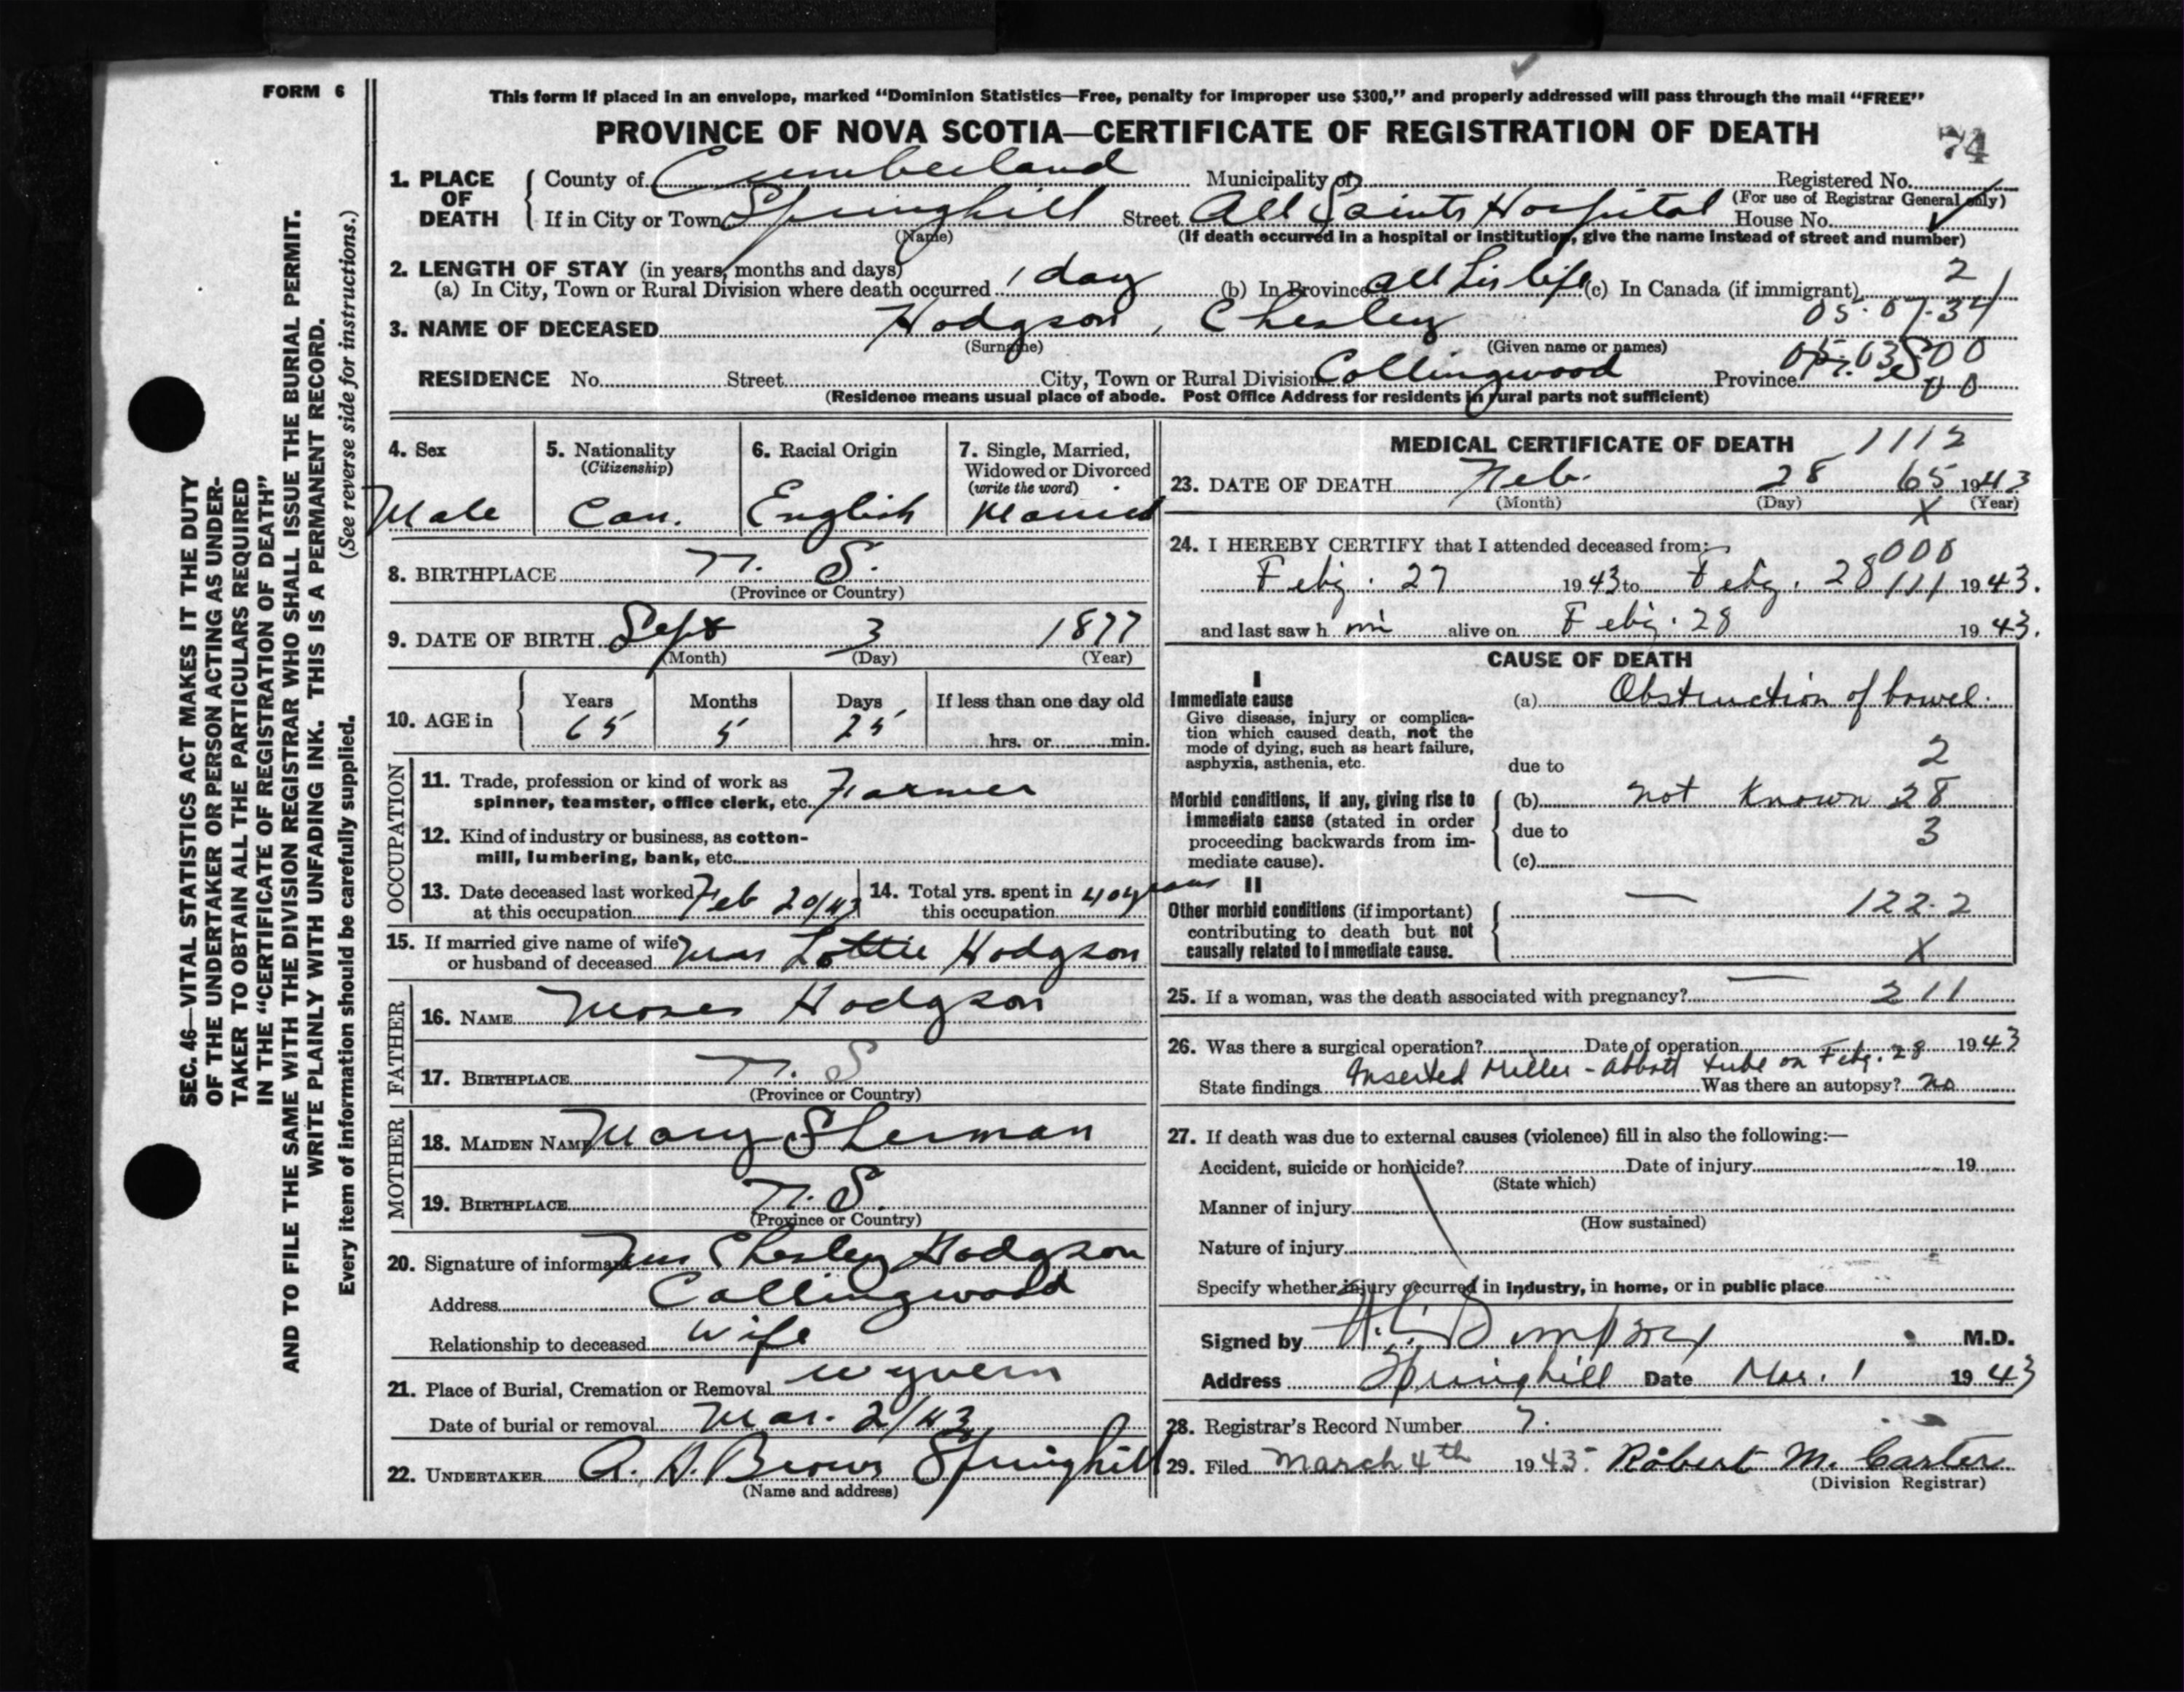 FORM 6
This form if placed in an envelope, marked “Dominion Statistics—Free, penalty for improper use $300,” and properly addressed will pass through the mail “FREE”
PROVINCE OF NOVA SCOTIA—CERTIFICATE OF REGISTRATION OF DEATH
74
1. PLACE OF DEATH
County of Cumberland Municipality of Registered No.
(For use of Registrar General only)
If in City or Town Springhill Street All Saints Hospital House No.
(Name) (If death occurred in a hospital or institution, give the name instead of street and number)
2. LENGTH OF STAY (in years, months and days)
2
(a) In City, Town or Rural Division where death occurred 1 day (b) In Province all his life (c) In Canada (if immigrant)
05-07-34
3. NAME OF DECEASED Hodgson, Chesley
(Surname) (Given name or names)
RESIDENCE No. Street City, Town or Rural Division Collingwood Province
(Residence means usual place of abode. Post Office Address for residents in rural parts not sufficient)
4. Sex Male
5. Nationality (Citizenship) Can.
6. Racial Origin English
7. Single, Married, Widowed or Divorced (write the word) Married
8. BIRTHPLACE N. S.
(Province or Country)
9. DATE OF BIRTH Sept 3 1877
(Month) (Day) (Year)
10. AGE in Years 65 Months 5 Days 25 If less than one day old hrs. or min.
OCCUPATION
11. Trade, profession or kind of work as spinner, teamster, office clerk, etc. Farmer
12. Kind of industry or business, as cotton-mill, lumbering, bank, etc.
13. Date deceased last worked at this occupation Feb 20/43
14. Total yrs. spent in this occupation 40 years
15. If married give name of wife or husband of deceased Mrs Lottie Hodgson
FATHER
16. NAME Moses Hodgson
17. BIRTHPLACE N. S
(Province or Country)
MOTHER
18. MAIDEN NAME Mary Sherman
19. BIRTHPLACE N. S.
(Province or Country)
20. Signature of informant Mrs Chesley Hodgson
Address Collingwood
Relationship to deceased wife
21. Place of Burial, Cremation or Removal Wyvern
Date of burial or removal Mar. 2/43
22. UNDERTAKER A. H. Brown Springhill
(Name and address)
MEDICAL CERTIFICATE OF DEATH
1112
23. DATE OF DEATH Feb. 28 65 1943
(Month) (Day) (Year)
X
24. I HEREBY CERTIFY that I attended deceased from:
000
Feby. 27 1943 to Feby. 28 111 1943.
and last saw h im alive on Feby. 28 1943.
CAUSE OF DEATH
I
Immediate cause
Give disease, injury or complication which caused death, not the mode of dying, such as heart failure, asphyxia, asthenia, etc.
(a) Obstruction of bowel.
due to 2
Morbid conditions, if any, giving rise to immediate cause (stated in order proceeding backwards from immediate cause).
(b) not known 28
due to 3
(c)
II
Other morbid conditions (if important) contributing to death but not causally related to immediate cause.
— 122.2
X
25. If a woman, was the death associated with pregnancy? — 211
26. Was there a surgical operation? Date of operation 1943
Inserted Miller-Abbott tube on Feby. 28
State findings Was there an autopsy? no
27. If death was due to external causes (violence) fill in also the following:—
Accident, suicide or homicide? Date of injury 19
(State which)
Manner of injury
(How sustained)
Nature of injury
Specify whether injury occurred in industry, in home, or in public place
Signed by Dempsey M.D.
Address Springhill Date Mar. 1 1943
28. Registrar's Record Number 7.
29. Filed March 4th 1943 Robert M. Carter
(Division Registrar)
SEC. 46—VITAL STATISTICS ACT MAKES IT THE DUTY
OF THE UNDERTAKER OR PERSON ACTING AS UNDER-
TAKER TO OBTAIN ALL THE PARTICULARS REQUIRED
IN THE “CERTIFICATE OF REGISTRATION OF DEATH”
AND TO FILE THE SAME WITH THE DIVISION REGISTRAR WHO SHALL ISSUE THE BURIAL PERMIT.
WRITE PLAINLY WITH UNFADING INK. THIS IS A PERMANENT RECORD.
Every item of information should be carefully supplied. (See reverse side for instructions.)